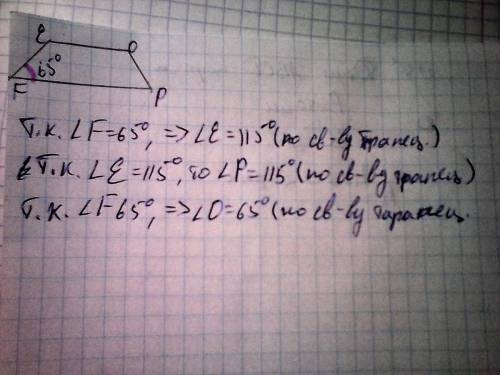 E O
65°
F P
Т.к. ∠F=65°, => ∠E=115° (по св-ву трапец.)
Т.к. ∠E=115°, то ∠P=115° (по св-ву трапец)
Т.к. ∠F65°, => ∠O=65° (по св-ву тарапец.